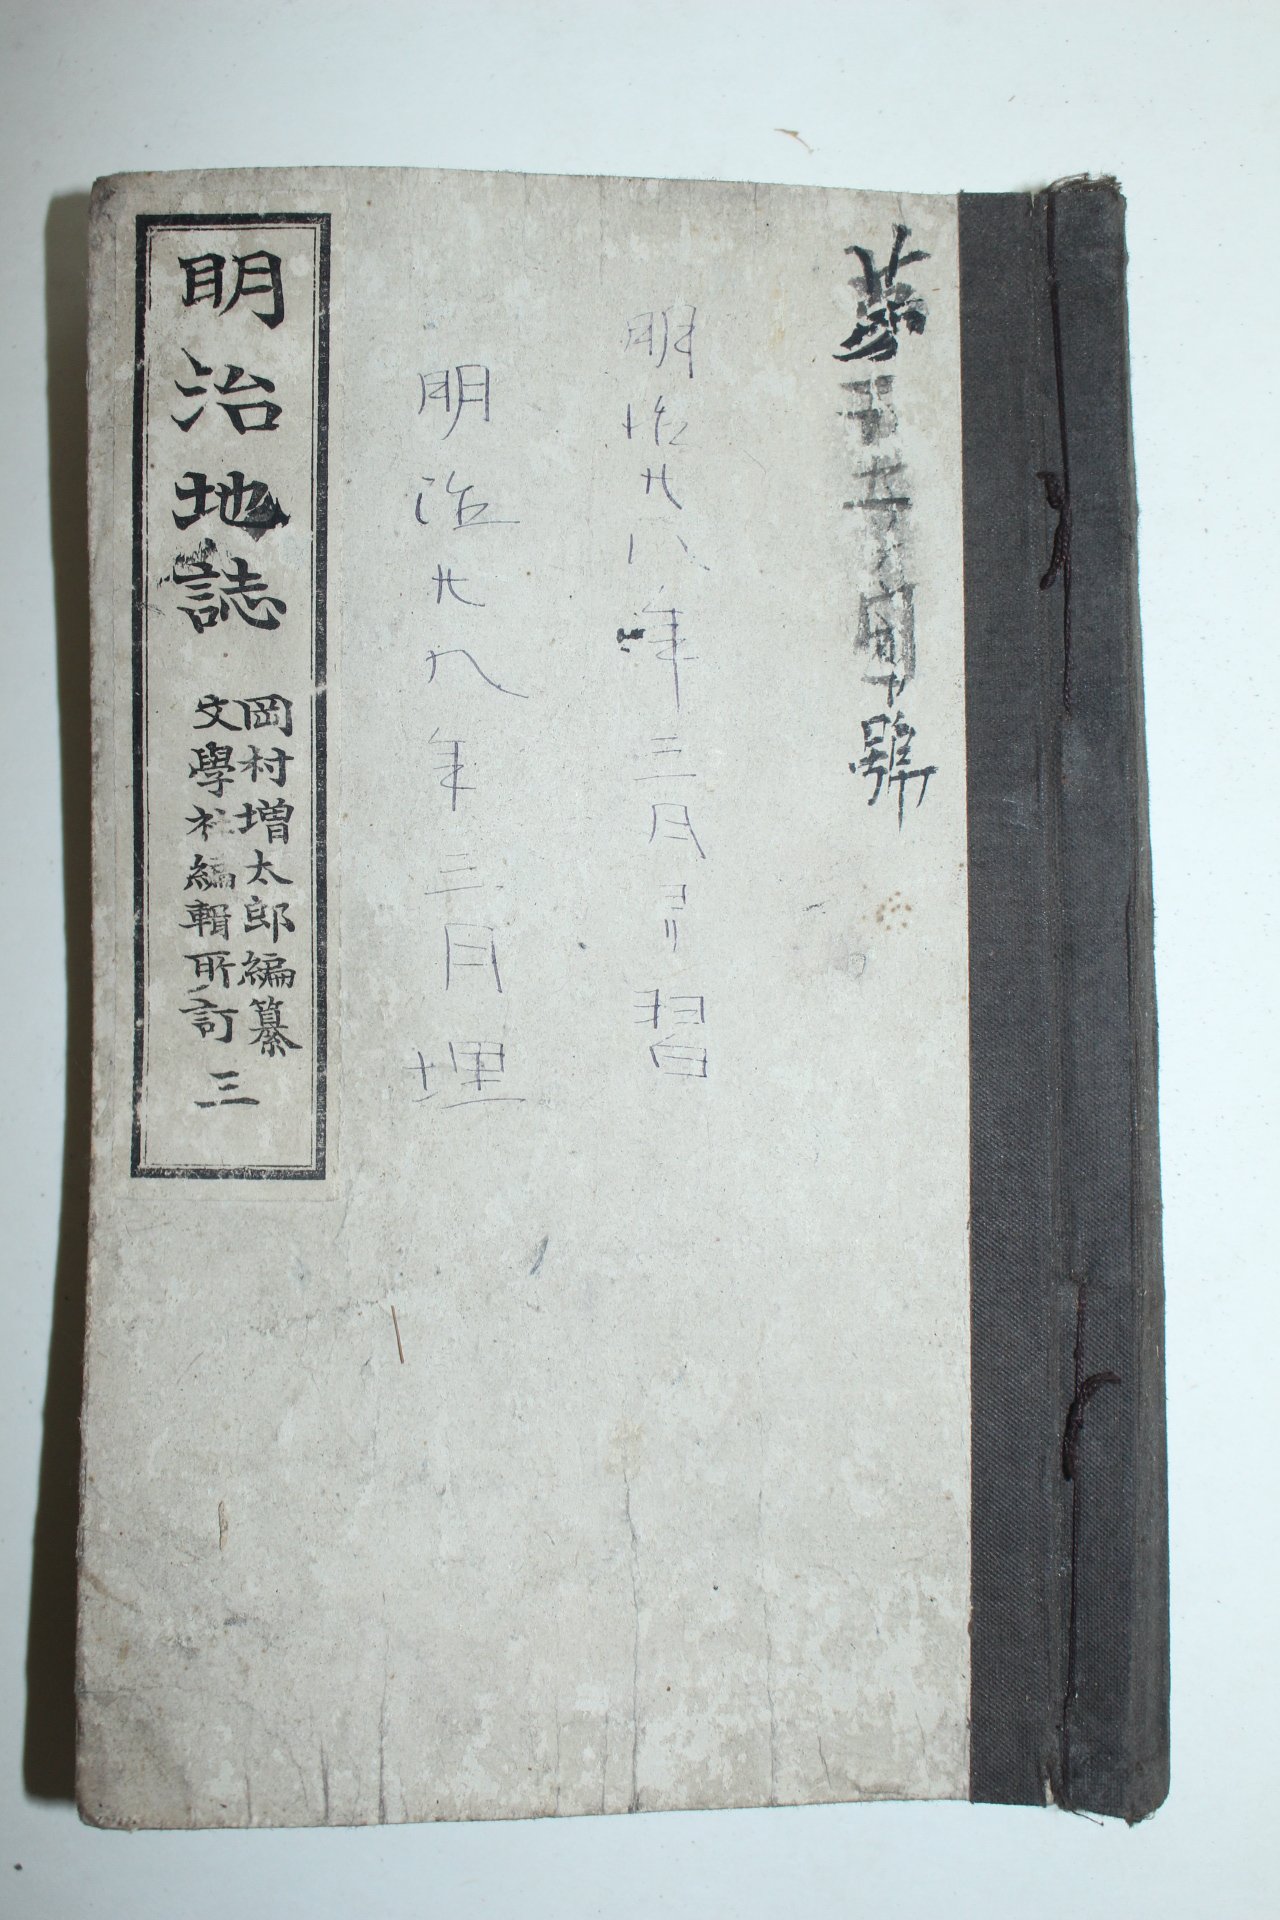 第
號
明治廿八年三月
習
明治廿九年三月埋
明治地誌
岡村増太郎編纂
文學社編輯所訂
三